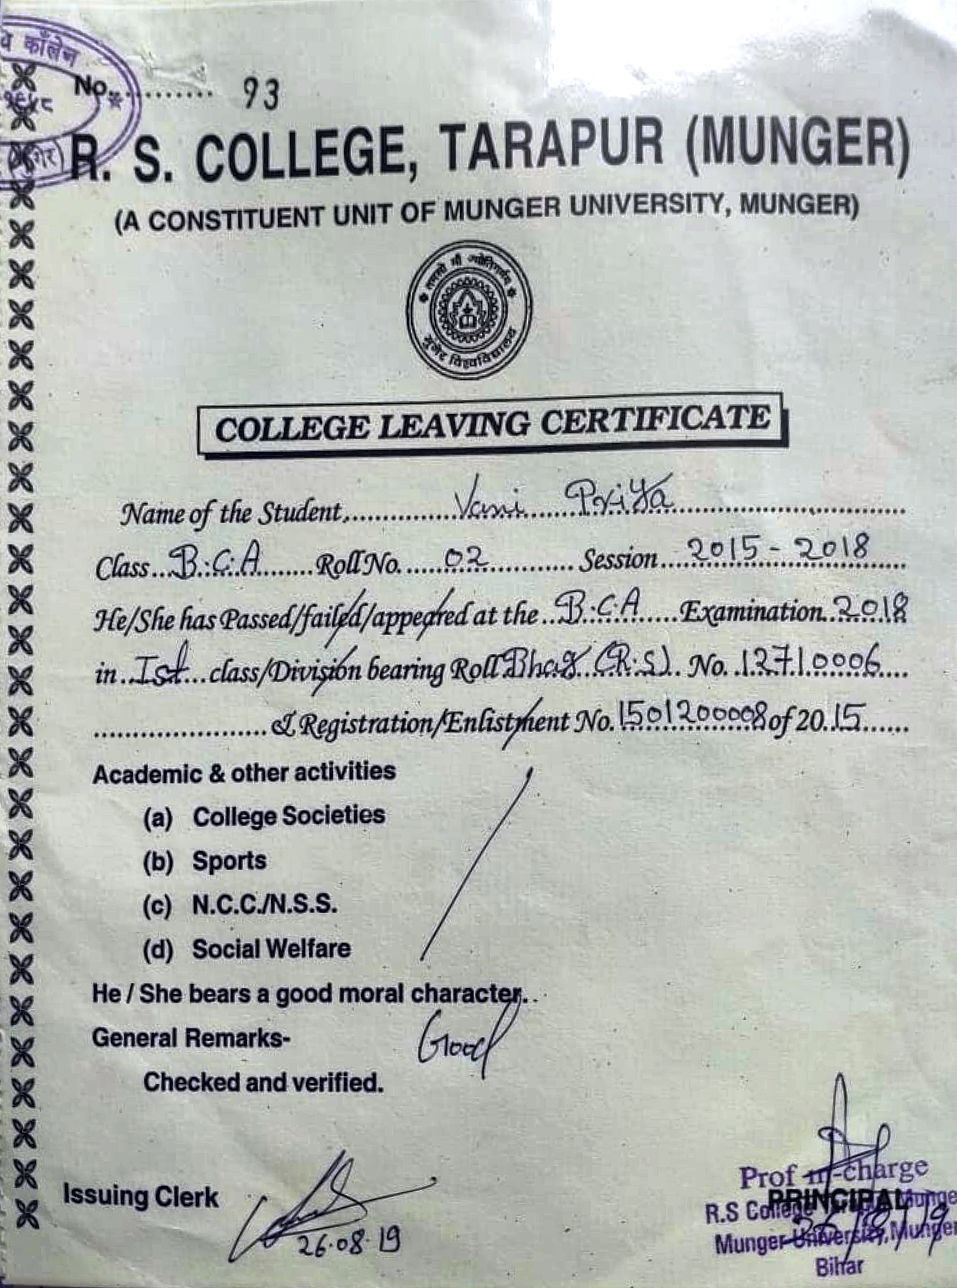 व कॉलेज
No............ 93
R. S. COLLEGE, TARAPUR (MUNGER)
(A CONSTITUENT UNIT OF MUNGER UNIVERSITY, MUNGER)
मुंगेर विश्वविद्यालय
COLLEGE LEAVING CERTIFICATE
Name of the Student, Vani Priya
Class B.C.A Roll No. 02 Session 2015 - 2018
He/She has Passed/failed/appeared at the B.C.A Examination 2018
in Ist class/Division bearing Roll Bhag (R.S). No. 12710006
& Registration/Enlistment No. 1501200008 of 2015
Academic & other activities
(a) College Societies
(b) Sports
(c) N.C.C./N.S.S.
(d) Social Welfare
He / She bears a good moral character..
General Remarks- Good
Checked and verified.
Issuing Clerk
26.08.19
Prof in-charge
PRINCIPAL
R.S College Munger
Munger University, Munger
Bihar